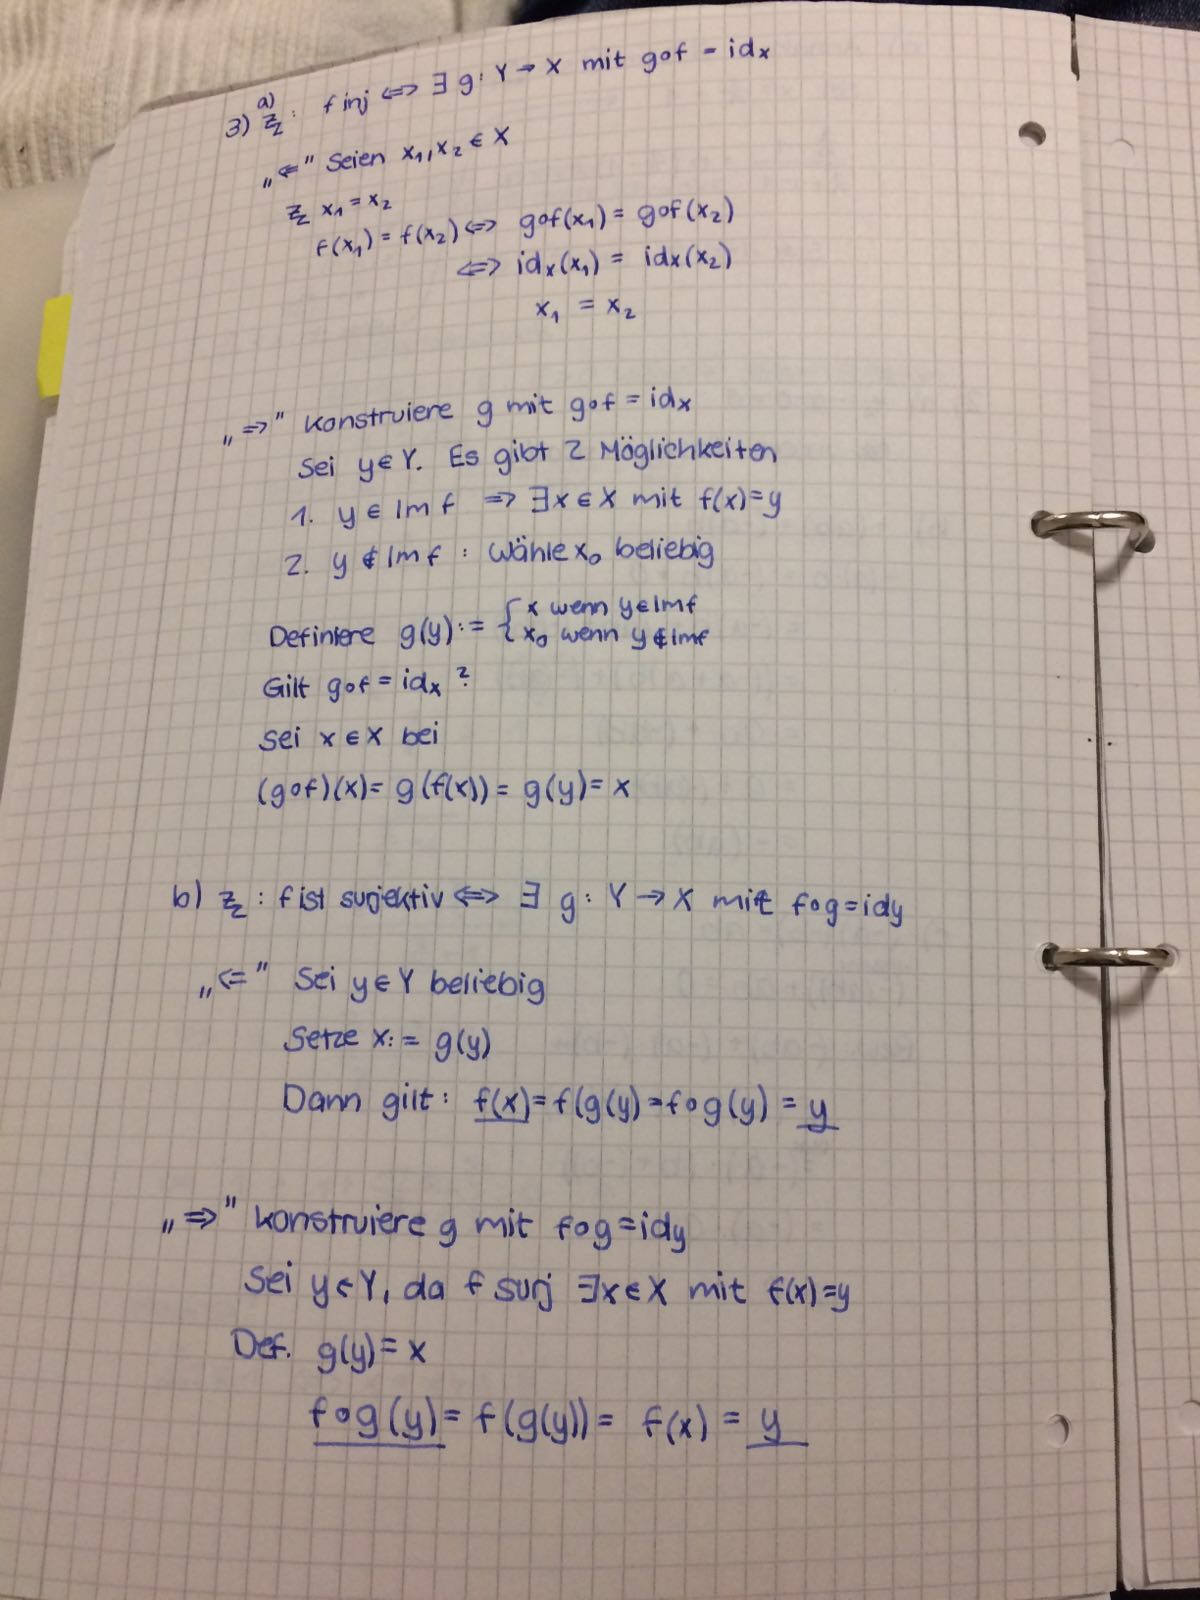 3) a) zz: f inj ⟺ ∃ g: Y → X mit g∘f = idx
„⇐" Seien x₁, x₂ ∈ X
zz x₁ = x₂
f(x₁) = f(x₂) ⟺ g∘f(x₁) = g∘f(x₂)
⟺ idx(x₁) = idx(x₂)
x₁ = x₂
„⇒" Konstruiere g mit g∘f = idx
Sei y ∈ Y. Es gibt 2 Möglichkeiten
1. y ∈ Im f ⇒ ∃x ∈ X mit f(x)=y
2. y ∉ Im f : Wähle x₀ beliebig
Definiere g(y) := { x wenn y ∈ Im f
x₀ wenn y ∉ Im f
Gilt g∘f = idx ?
Sei x ∈ X bei
(g∘f)(x) = g(f(x)) = g(y) = x
b) zz : f ist surjektiv ⟺ ∃ g: Y → X mit f∘g = idy
„⇐" Sei y ∈ Y beliebig
Setze x := g(y)
Dann gilt: f(x) = f(g(y) = f∘g(y) = y
„⇒" Konstruiere g mit f∘g = idy
Sei y ∈ Y, da f surj ∃x ∈ X mit f(x) = y
Def. g(y) = x
f∘g(y) = f(g(y)) = f(x) = y